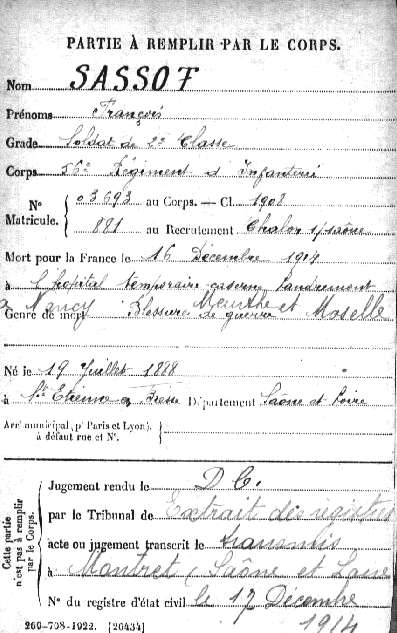 PARTIE À REMPLIR PAR LE CORPS.
Nom SASSOT
Prénoms François
Grade Soldat de 2e Classe
Corps 56e Régiment d'Infanterie
N° Matricule. 03693 au Corps. — Cl. 1908
881 au Recrutement Chalon s/ saône
Mort pour la France le 16 Décembre 1914
à l'hôpital temporaire caserne Landremont
a Nancy Meurthe et Moselle
Genre de mort Blessures de guerre
Né le 19 Juillet 1888
à St Etienne en Bresse Département Saône et Loire
Arrt municipal (pr Paris et Lyon),
à défaut rue et N°.
Cette partie
n'est pas à remplir
par le Corps.
Jugement rendu le D C.
par le Tribunal de Extrait des registres
acte ou jugement transcrit le transmis
à Montret Saône et Loire
N° du registre d'état civil le 17 Décembre
1914
260-708-1922. [26434]